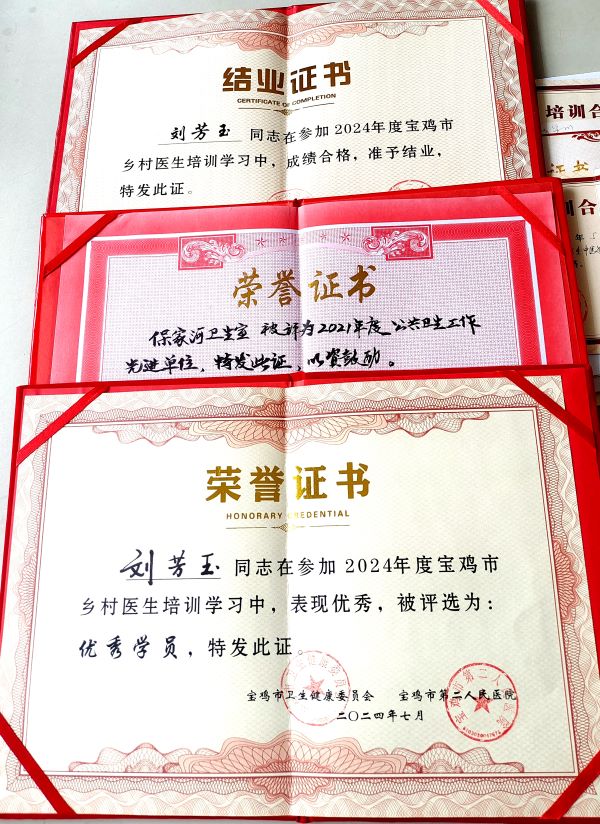 结业证书
CERTIFICATE OF COMPLETION
刘芳玉 同志在参加 2024年度宝鸡市
乡村医生培训学习中，成绩合格，准予结业，
特发此证。
培训合
证书
训合
荣誉证书
保家河卫生室 被评为2021年度 公共卫生工作
先进单位，特发此证，以资鼓励。
荣誉证书
HONORARY CREDENTIAL
刘芳玉 同志在参加 2024年度宝鸡市
乡村医生培训学习中，表现优秀，被评选为：
优秀学员，特发此证。
宝鸡市卫生健康委员会 宝鸡市第二人民医院
二〇二四年七月